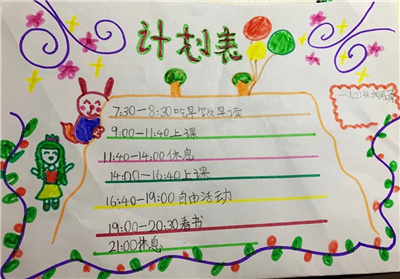 计划表
7:30-8:30吃早饭早读
9:00-11:40上课
11:40-14:00休息
14:00-16:40上课
16:40-19:00自由活动
19:00-20:30看书
21:00休息